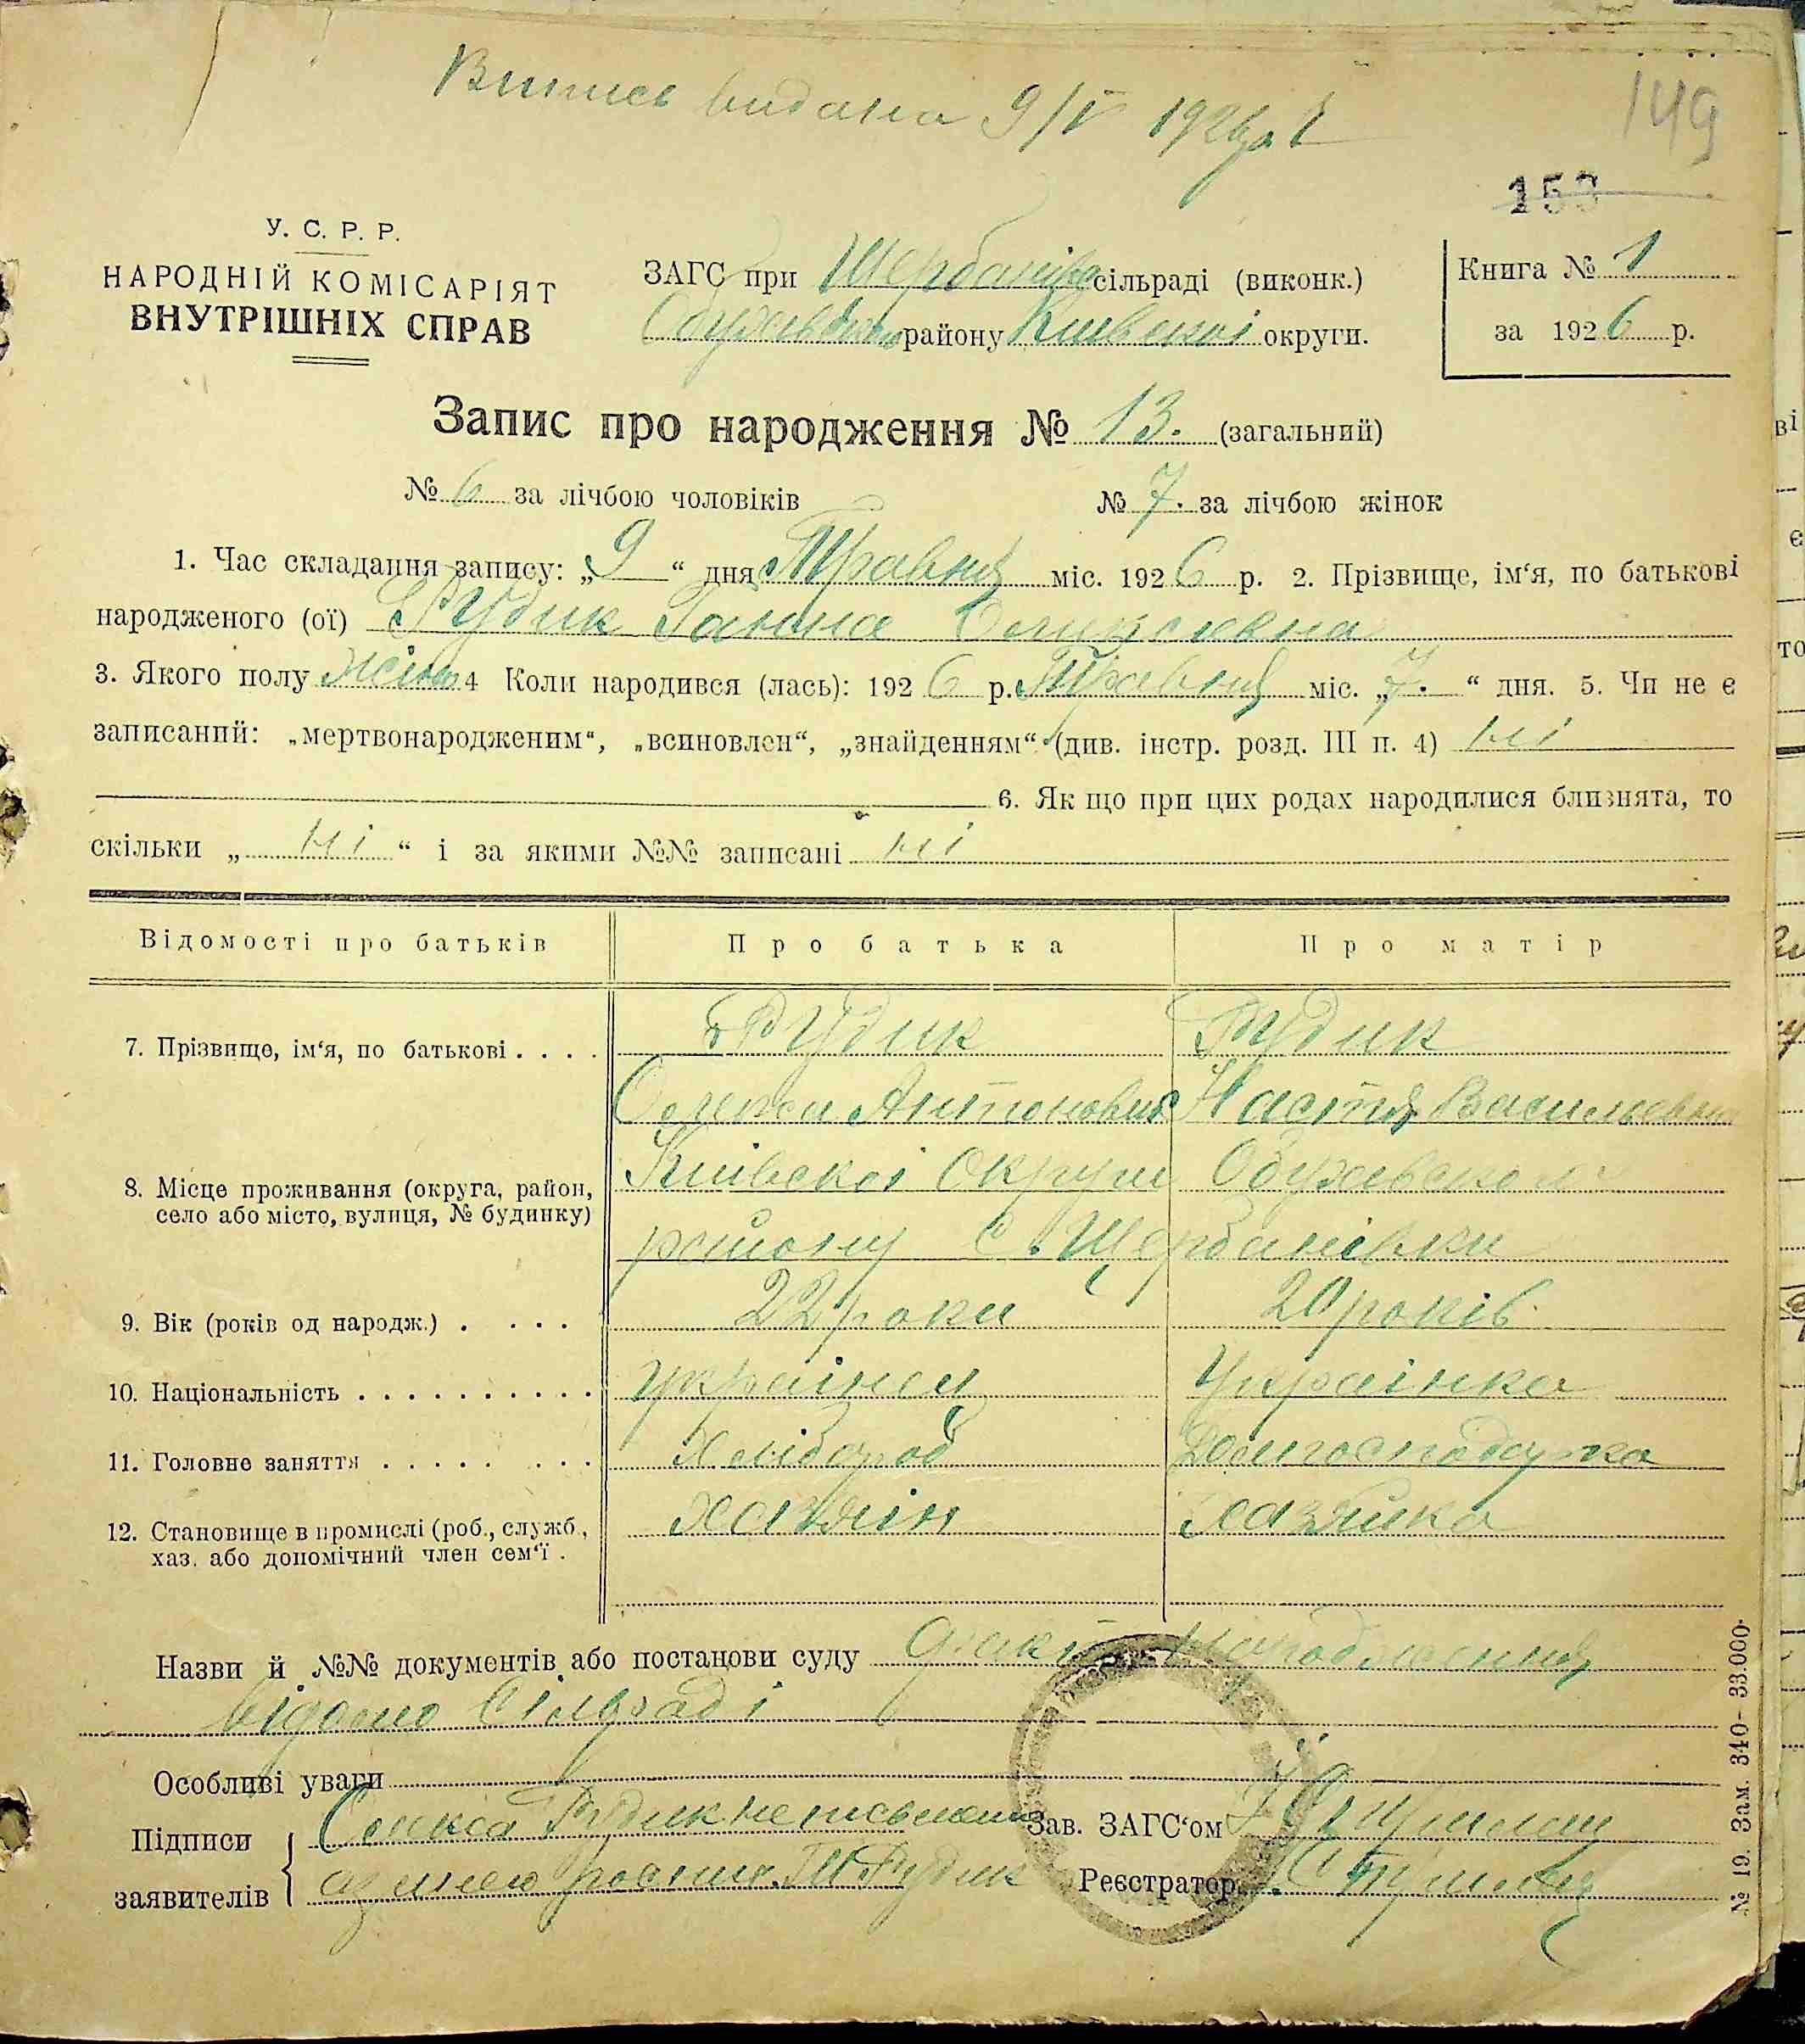 Випись видана 9/V 1926 р.
149
153
У. С. Р. Р.
НАРОДНІЙ КОМІСАРІЯТ
ВНУТРІШНІХ СПРАВ
ЗАГС при Щербанівс сільраді (виконк.)
Обухівського району Київської округи.
Книга № 1
за 1926 р.
Запис про народження № 13. (загальний)
№ 6 за лічбою чоловіків № 7. за лічбою жінок
1. Час складання запису: „9“ дня Травня міс. 1926 р. 2. Прізвище, ім‘я, по батькові
народженого (ої) Рудик Ганна Олексіевна
3. Якого полу жіноч 4 Коли народився (лась): 1926 р. Травня міс. „7.“ дня. 5. Чи не є
записаний: „мертвонародженим“, „всиновлен“, „знайденням“ (див. інстр. розд. III п. 4) ні
6. Як що при цих родах народилися близнята, то
скільки „ні“ і за якими №№ записані ні
Відомості про батьків Про батька Про матір
7. Прізвище, ім‘я, по батькові . . . . Рудик Рудик
Олекса Антонович Настя Васильевна
8. Місце проживання (округа, район, Київскої Округи Обухівського
село або місто, вулиця, № будинку)
району С. Щербанівки
9. Вік (років од народж.) . . . . 22 роки 20 років
10. Національність . . . . . . . . . . українец Українка
11. Головне заняття . . . . . . . . Хлібороб Домгосподарка
12. Становище в промислі (роб., служб., хазяїн хазяйка
хаз. або допомічний член сем‘ї .
Назви й №№ документів або постанови суду факт народження
відомо Сільраді
Особливі уваги
Підписи Олекса Рудик неписьменний Зав. ЗАГС‘ом
заявителів а за нього росписи. Рудик Реєстратор
№ 19. Зам. 340—33.000.